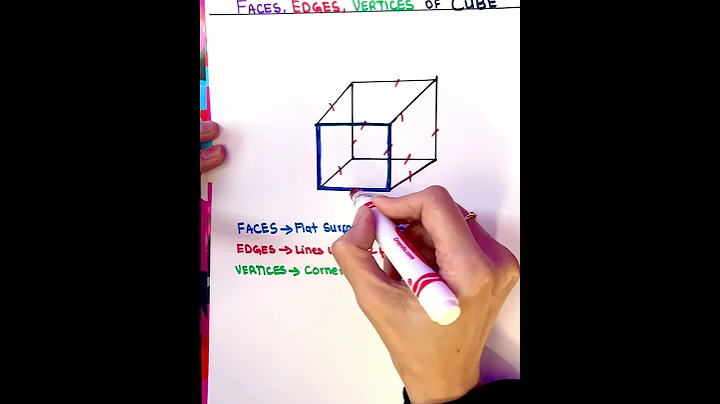 FACES, EDGES, VERTICES OF CUBE
FACES → Flat
EDGES → Lines
VERTICES →
Crayola.com